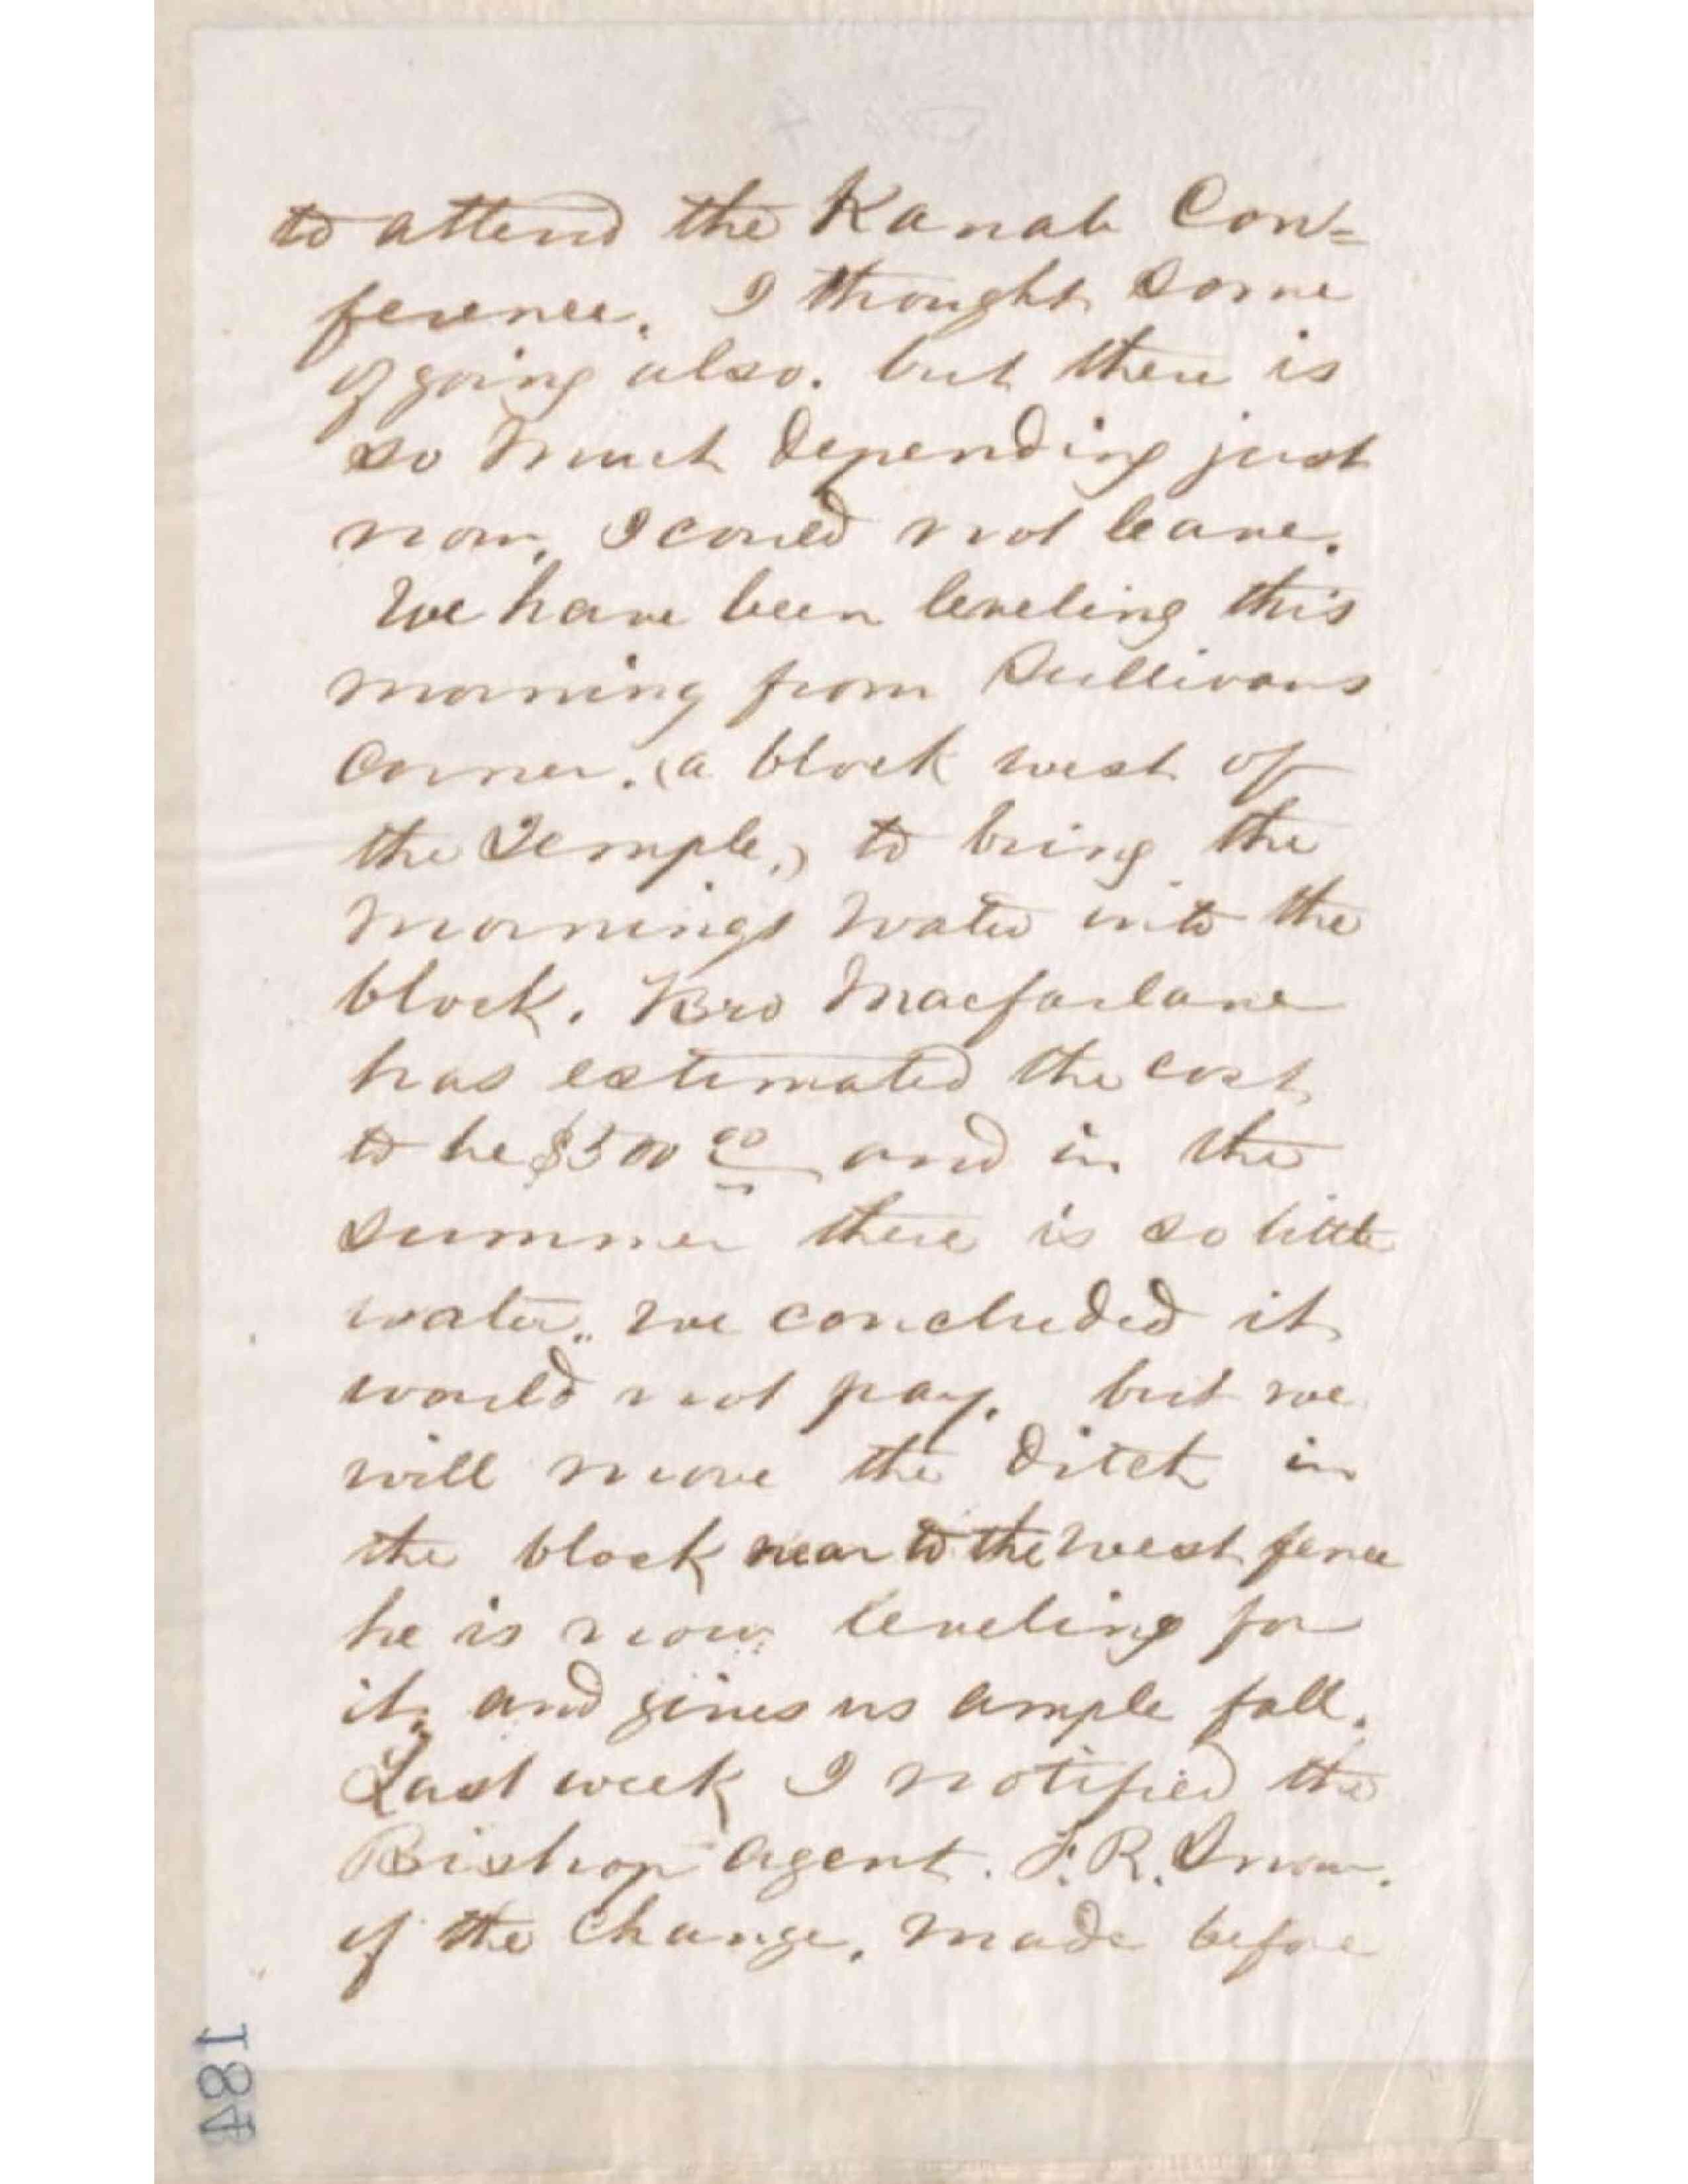 to attend the Kanab Con=
ference. I thought some
of going also. but there is
so much depending just
now, I could not leave.
We have been leveling this
morning from Sullivans
corner. (a block west of
the Temple.) to bring the
mornings water into the
block. Bro Macfarlane
has estimated the cost
to be $500 00 and in the
summer there is so little
water,, we concluded it
would not pay. but we
will move the ditch in
the block near to the west fence
he is now leveling for
it, and gives us ample fall.
Last week I notified the
Bishop agent. F. R. Snow.
of the change, made before
184